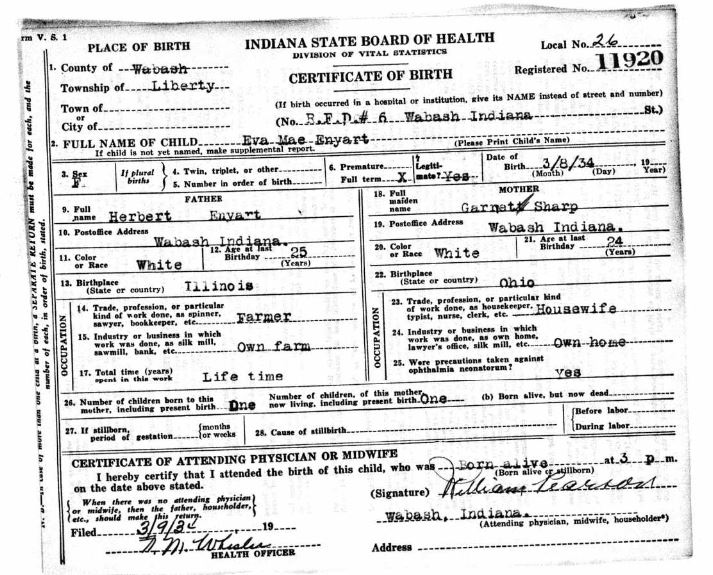 rm V. S. 1
PLACE OF BIRTH
INDIANA STATE BOARD OF HEALTH
DIVISION OF VITAL STATISTICS
CERTIFICATE OF BIRTH
Local No. 26
Registered No. 11920
1. County of Wabash
Township of Liberty
Town of
or
City of
(If birth occurred in a hospital or institution, give its NAME instead of street and number)
(No. R.F.D.# 6 Wabash Indiana St.)
2. FULL NAME OF CHILD Eva Mae Enyart (Please Print Child's Name)
If child is not yet named, make supplemental report.
3. Sex F
If plural births
4. Twin, triplet, or other
5. Number in order of birth
6. Premature
Full term X
7 Legiti-
mate? Yes
Date of
Birth 3/8/34, 19
(Month) (Day) Year)
FATHER
9. Full
name Herbert Enyart
10. Postoffice Address
Wabash Indiana.
11. Color
or Race White
12. Age at last
Birthday 25
(Years)
13. Birthplace Illinois
(State or country)
OCCUPATION
14. Trade, profession, or particular
kind of work done, as spinner,
sawyer, bookkeeper, etc. Farmer
15. Industry or business in which
work was done, as silk mill,
sawmill, bank, etc. Own farm
17. Total time (years)
spent in this work Life time
MOTHER
18. Full
maiden
name Garnet Sharp
19. Postoffice Address
Wabash Indiana.
20. Color
or Race White
21. Age at last
Birthday 24
(Years)
22. Birthplace
(State or country) Ohio
OCCUPATION
23. Trade, profession, or particular kind
of work done, as housekeeper, Housewife
typist, nurse, clerk, etc.
24. Industry or business in which
work was done, as own home,
lawyer's office, silk mill, etc. Own home
25. Were precautions taken against
ophthalmia neonatorum? Yes
26. Number of children born to this
mother, including present birth One
Number of children, of this mother,
now living, including present birth One
(b) Born alive, but now dead
27. If stillborn,
period of gestation
months
or weeks
28. Cause of stillbirth
Before labor
During labor
CERTIFICATE OF ATTENDING PHYSICIAN OR MIDWIFE
I hereby certify that I attended the birth of this child, who was Born alive at 3 p m.
(Born alive or stillborn)
on the date above stated.
When there was no attending physician
or midwife, then the father, householder,
etc., should make this return.
(Signature) William Pearson
Wabash, Indiana.
(Attending physician, midwife, householder*)
Filed 3/9/34, 19
HEALTH OFFICER
Address
a SEPARATE RETURN must be made for each, and the
number of each, in order of birth, stated.